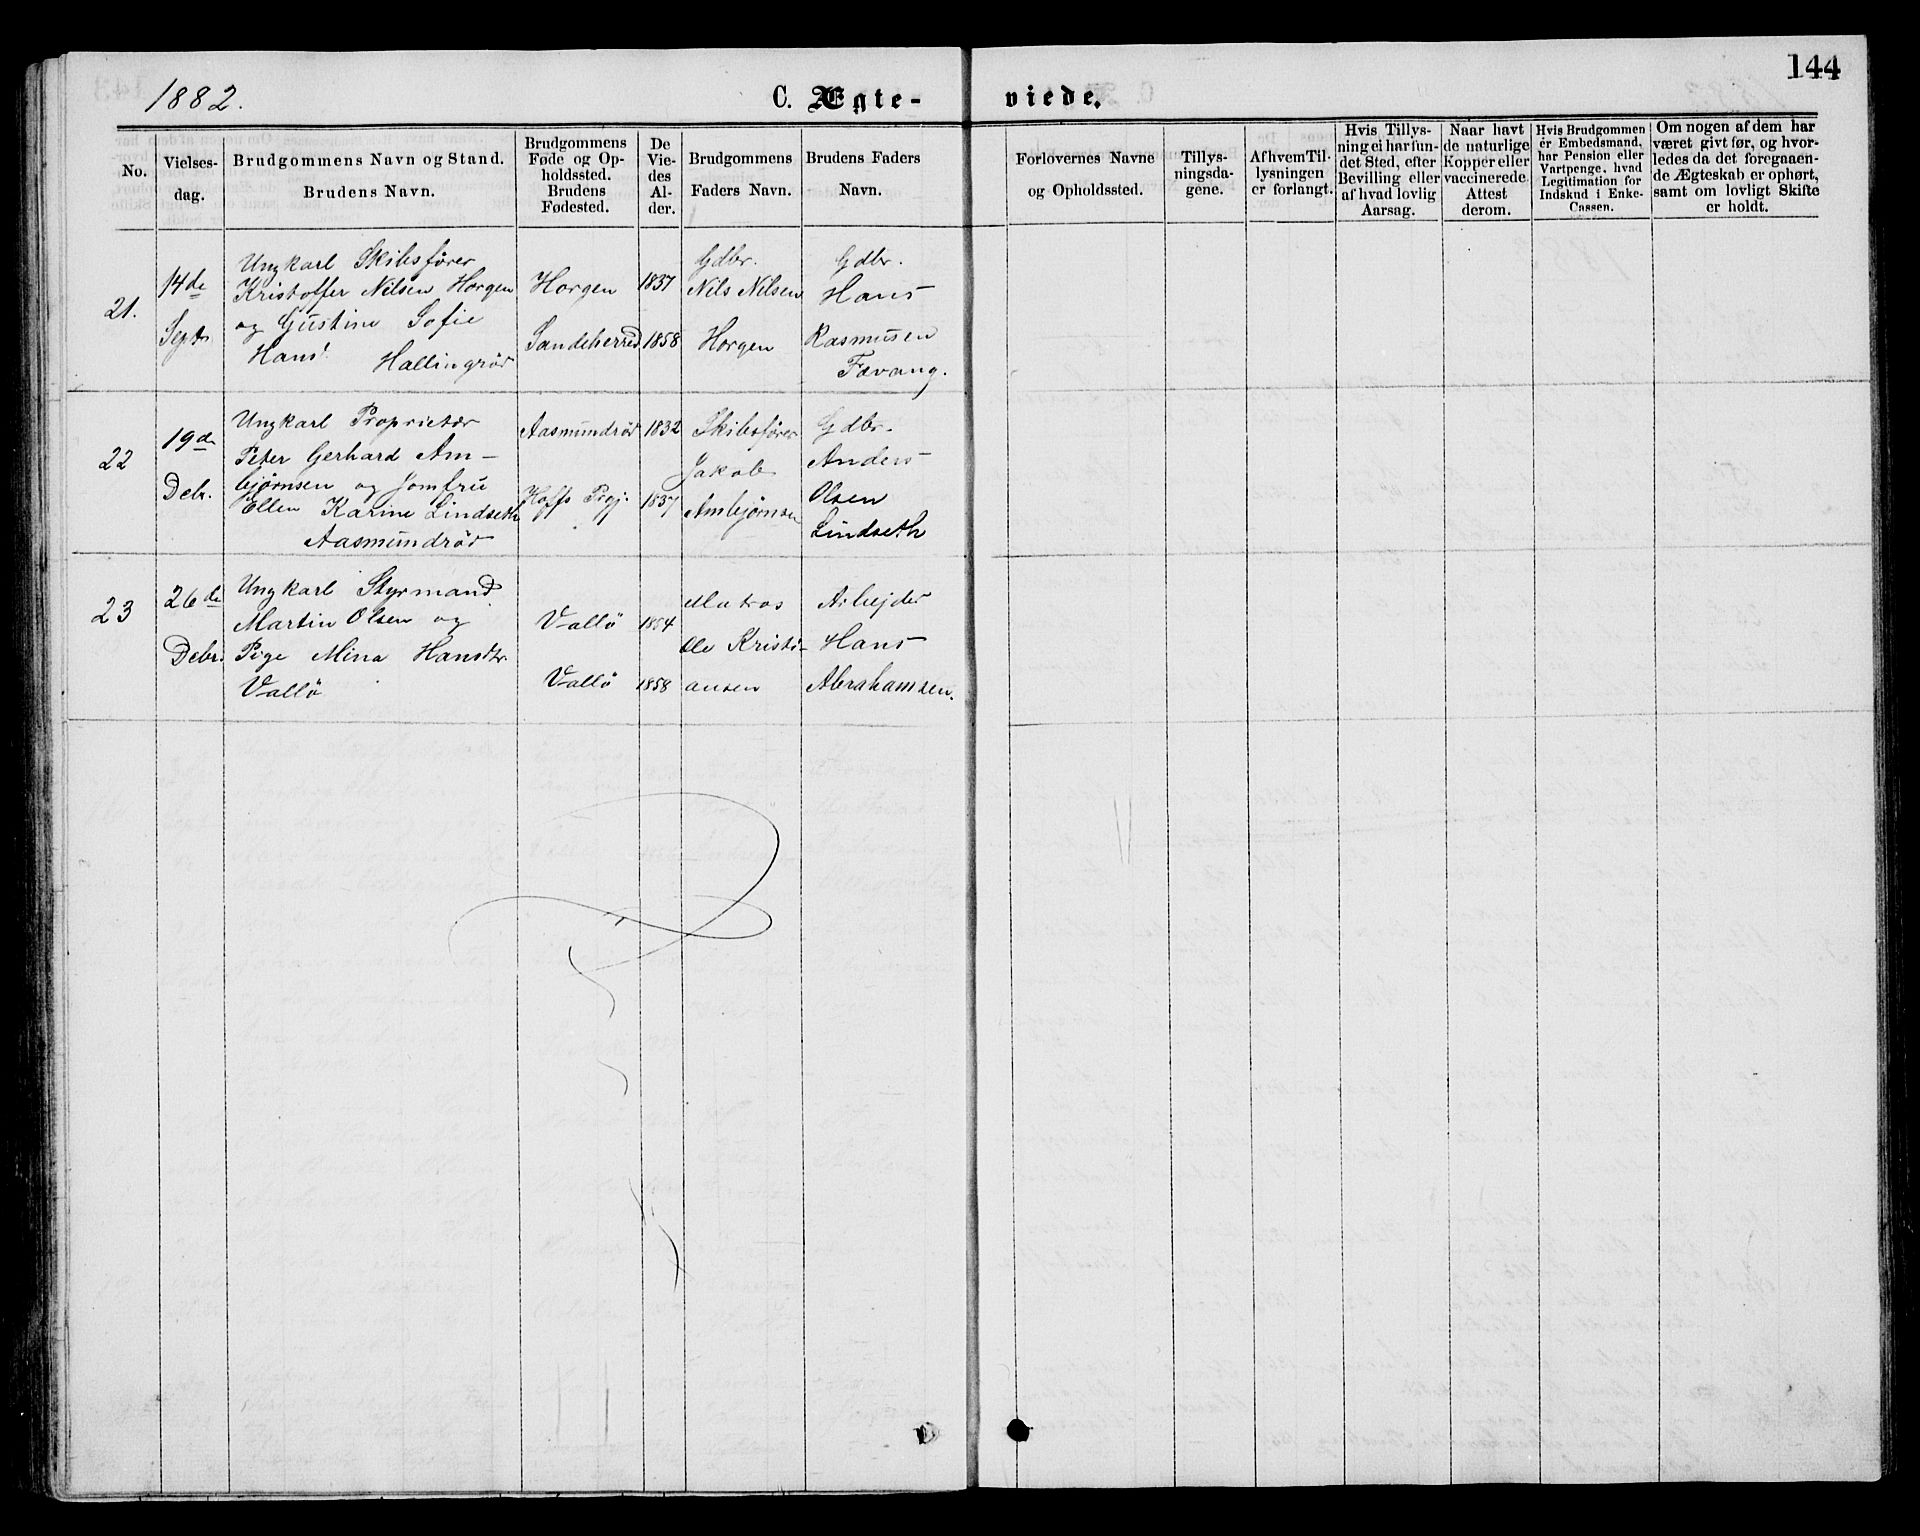 144
1882.
C. Ægte-
viede.
No.
Vielses-
dag.
Brudgommens Navn og Stand.
Brudens Navn.
Brudgommens
Føde og Op-
holdssted.
Brudens
Fødested.
De
Vie-
des
Al-
der.
Brudgommens
Faders Navn.
Brudens Faders
Navn.
Forlovernes Navne
og Opholdssted.
Tillys-
ningsda-
gene.
Af hvem Til-
lysningen
er forlangt.
Hvis Tillys-
ning ei har fun-
det Sted, efter
Bevilling eller
af hvad lovlig
Aarsag.
Naar havt
de naturlige
Kopper eller
vaccinerede.
Attest
derom.
Hvis Brudgommen
er Embedsmand,
har Pension eller
Vartpenge, hvad
Legitimation for
Indskud i Enke-
Cassen.
Om nogen af dem har
været givt før, og hvor-
ledes da det foregaaen-
de Ægteskab er ophørt,
samt om lovligt Skifte
er holdt.
21.
14de
Septr
Ungkarl Skibsfører
Kristoffer Nilsen Horgen
og Gustine Sofie
Hansd. Hallingrød
Horgen
Sandeherred
1837
1858
Gdbr.
Nils Nilsen
Horgen
Gdbr.
Hans
Rasmusen
Fævang.
22
19de
Debr.
Ungkarl Proprietær
Peter Gerhard Am-
bjørnsen og Jomfru
Ellen Karine Lindseth
Aasmundrød
Aasmundrød
Hoffs Prgj.
1832
1837
Skibsfører
Jakob
Ambjørnsen
Gdbr.
Anders
Olsen
Lindseth
23
26de
Debr.
Ungkarl Styrmand
Martin Olsen og
Pige Mina Hansdtr.
Vallö
Vallö
Vallö
1854
1858
Matros
Ole Kristi-
ansen
Arbejder
Hans
Abrahamsen.